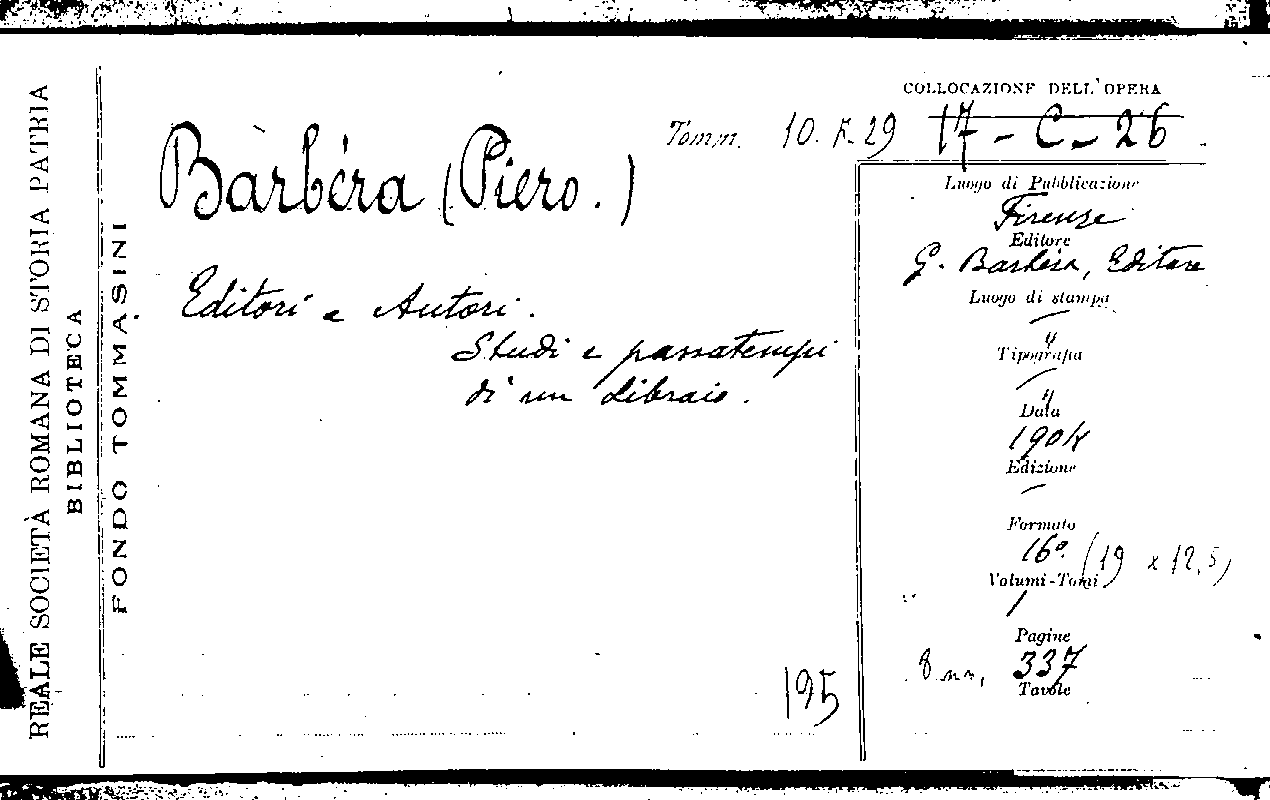 REALE SOCIETÀ ROMANA DI STORIA PATRIA
BIBLIOTECA
FONDO TOMMASINI
Barbèra (Piero.)
Editori e Autori.
Studi e passatempi
di un libraio.
195
COLLOCAZIONE DELL'OPERA
Tomm. 10. K. 29 17 - C - 26
Luogo di Pubblicazione
Firenze
Editore
G. Barbèra, Editore
Luogo di stampa
"
Tipografia
"
Data
1904
Edizione
Formato
16º (19 x 12,5)
Volumi-Tomi
1
Pagine
8 nn, 337
Tavole